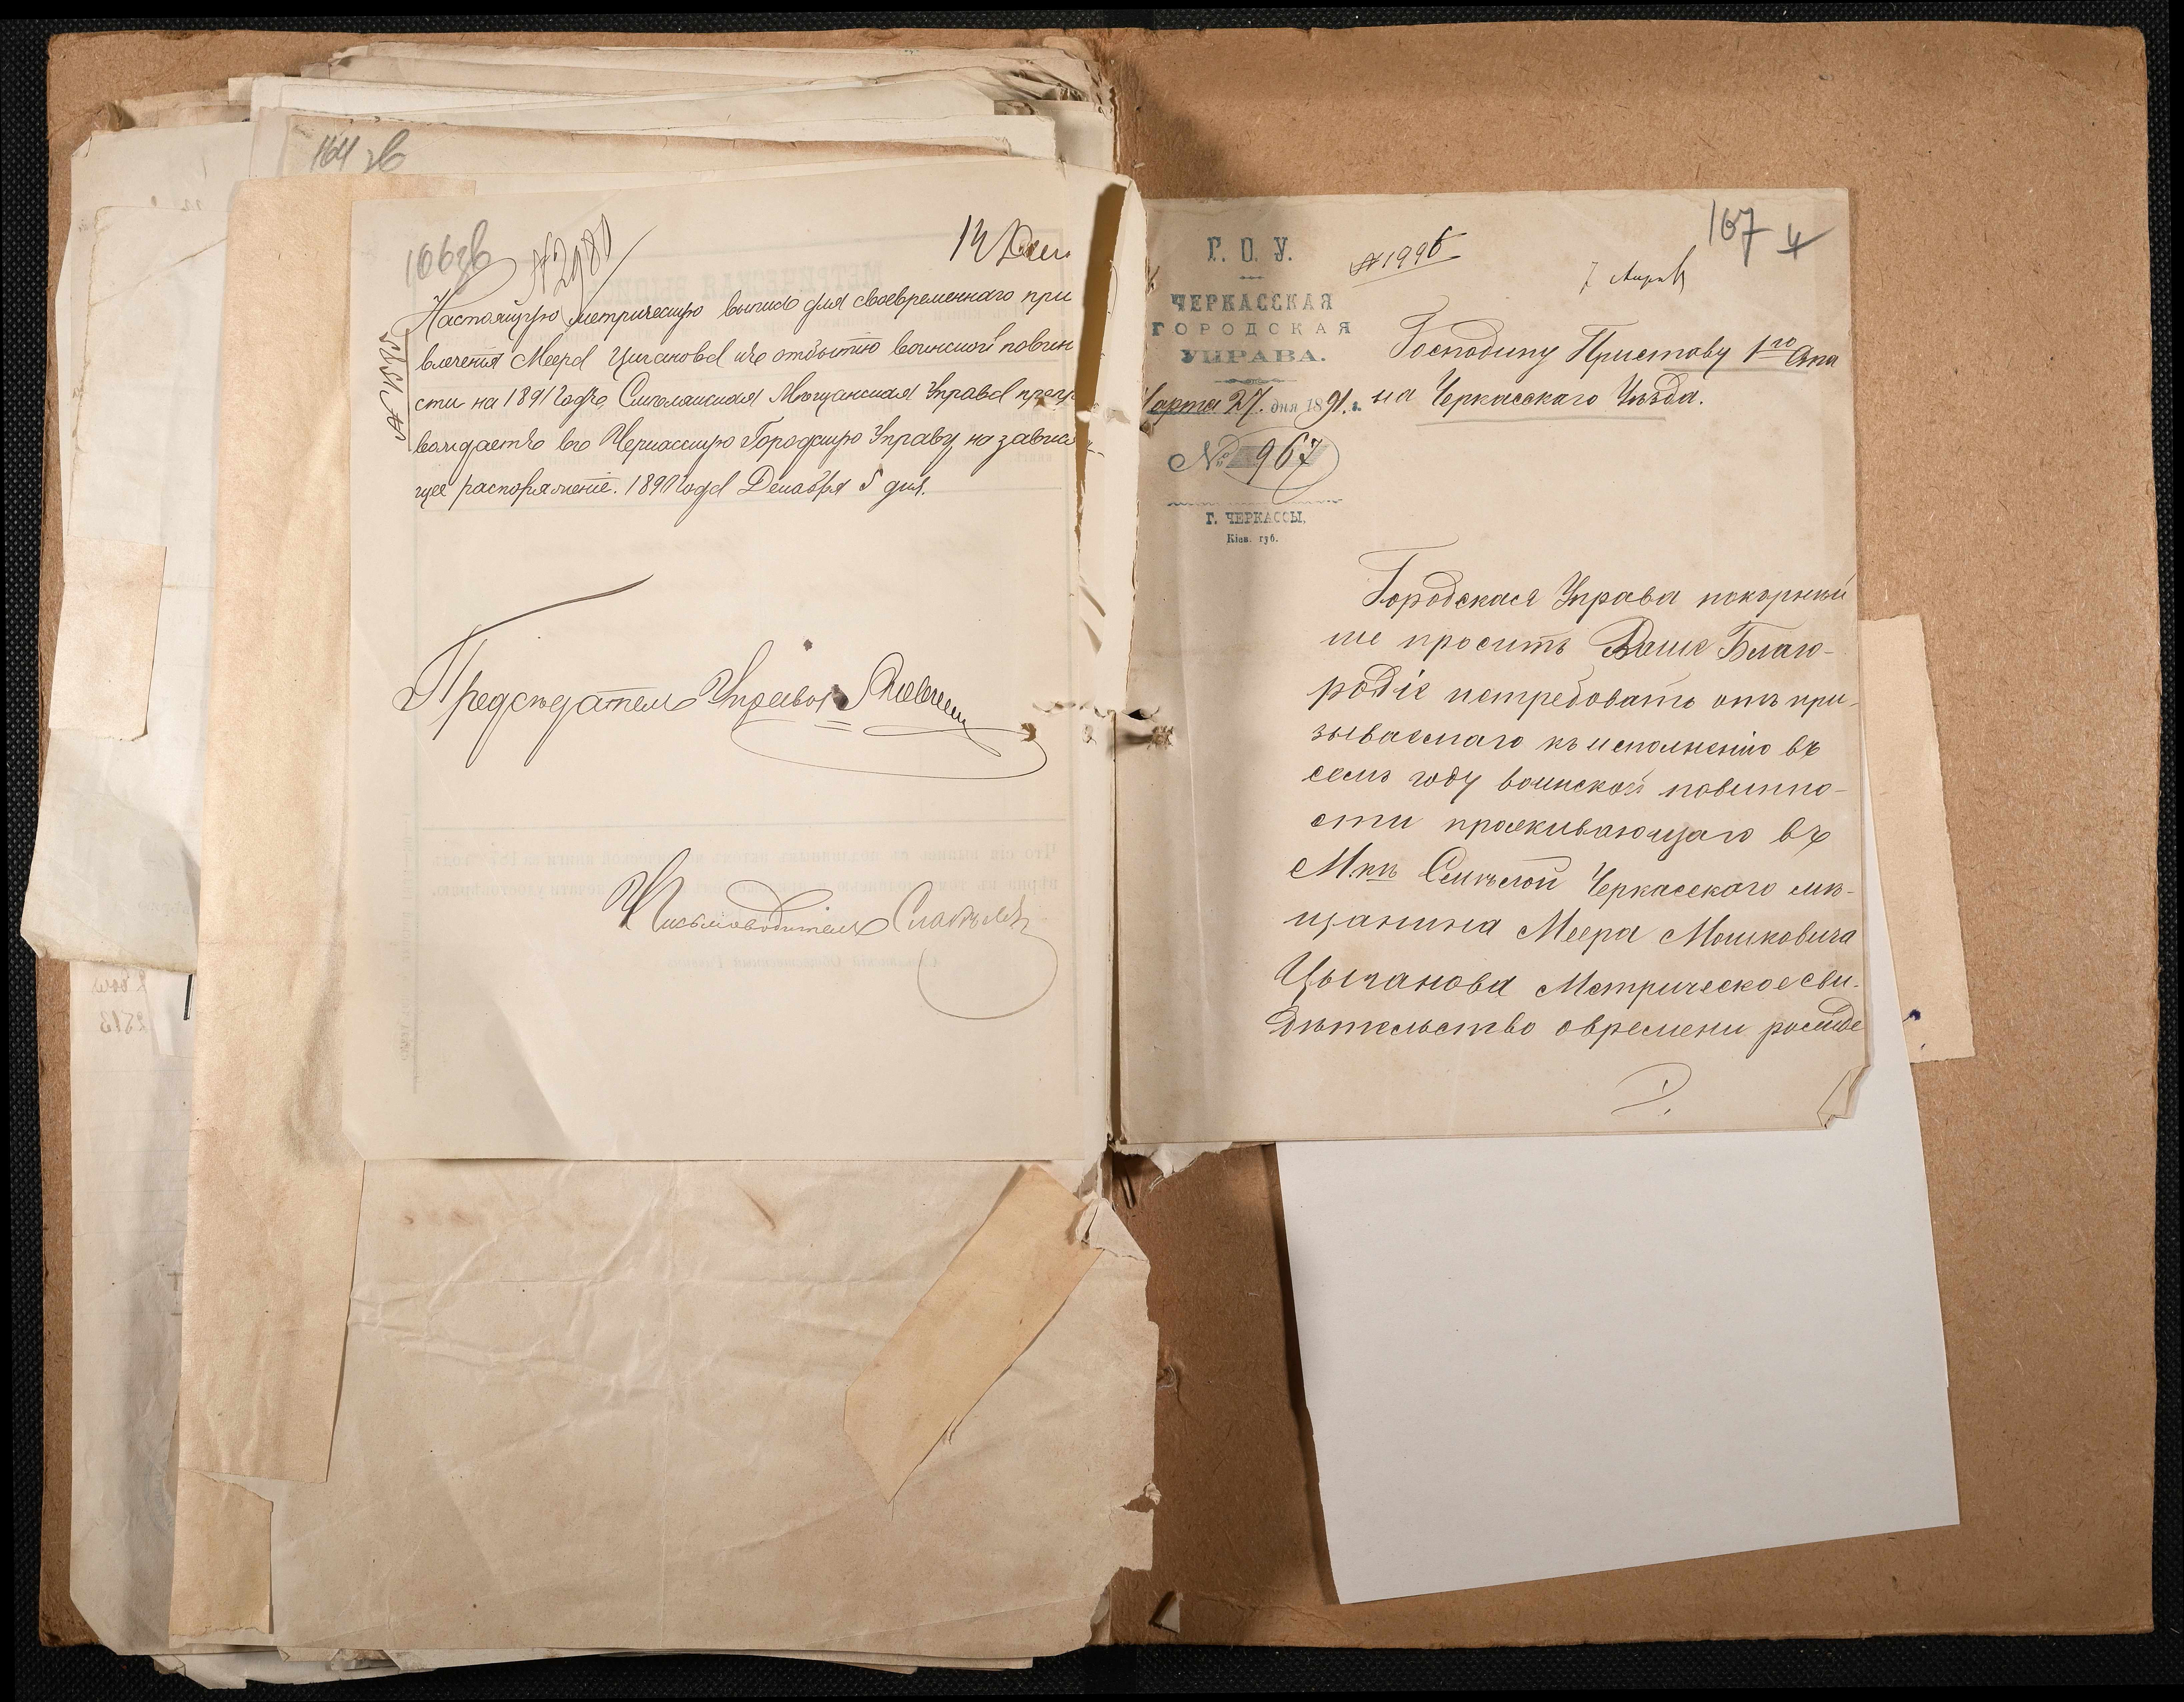 164 зв
166 зв
№ 2980
12 Дек.
№ 1535
Настоящую метрическую выпись для своевременнаго при
влеченія Меера Циганова къ отбытію воинской повин
сти на 1891 годъ, Смѣлянская Мѣщанская Управа препро
вождаетъ въ Черкасскую Городскую Управу на зависѧ
щее распоряженіе. 1890 года Декабря 5 дня.
Предсѣдатель Управы
Письмоводитель
167 4
№ 1996
7 Апрѣ
Г. О. У.
ЧЕРКАССКАЯ
ГОРОДСКАЯ
УПРАВА.
Марта 27. дня 1891 г.
№ 967
Г. ЧЕРКАССЫ,
Кіев. губ.
Господину Приставу 1го Ста
на Черкасскаго Уѣзда.
Городская Управа покорнѣй
ше проситъ Ваше Благо-
родіе истребовать отъ при-
зываемаго къ исполненію въ
семъ году воинской повинно-
сти проживающаго въ
М.кѣ Смѣлой Черкасскаго мѣ-
щанина Меера Мошковича
Цыганова Метрическое сви-
дѣтельство о времени рожде